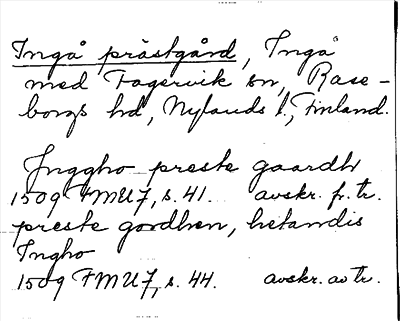 Ingå prästgård, Ingå
med Fagervik sn, Rase-
borgs hd, Nylands l., Finland.
Jnggho preste gaardh
1509 FMU 7, s. 41. avskr. fr. tr.
preste gordhen, hetandis
Ingho
1509 FMU 7, s. 44. avskr. av tr.